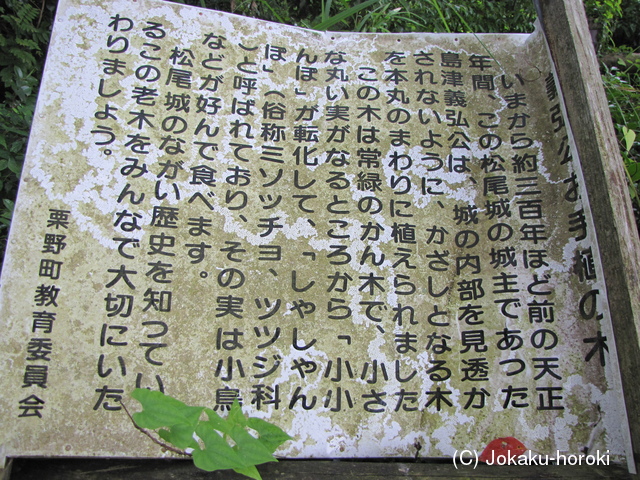 義弘公お手植の木
いまから約三百年ほど前の天正
年間、この松尾城の城主であった
島津義弘公は、城の内部を見透か
されないように、かざしとなる木
を本丸のまわりに植えられました
この木は常緑のかん木で、小さ
な丸い実がなるところから「小小
んぼ」が転化して、「しゃしゃん
ぽ」（俗称ミソッチョ、ツツジ科
こと呼ばれており、その実は小鳥
などが好んで食べます。
松尾城のながい歴史を知ってい
るこの老木をみんなで大切にいた
わりましょう。
栗野町教育委員会
(C) Jokaku-horoki